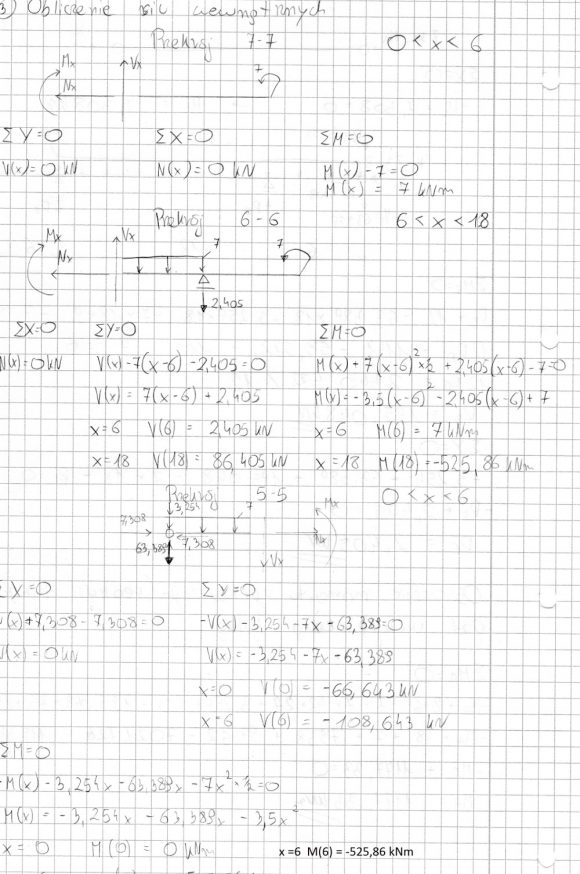 3) Obliczenie sił wewnętrznych
Przekrój 7-7 0 < x < 6
Mx Vx 7
Nx
ΣY=0 ΣX=0 ΣM=0
V(x)=0 kN N(x)=0 kN M(x) - 7=0
M(x) = 7 kNm
Przekrój 6-6 6 < x < 18
Mx Vx 7 7
Nx
2,405
ΣX=0 ΣY=0 ΣM=0
N(x)=0 kN V(x)-7(x-6)-2,405=0 M(x)+7(x-6)²×½ + 2,405(x-6)-7=0
V(x) = 7(x-6)+2,405 M(x)=-3,5(x-6)² -2405(x-6)+7
x=6 V(6) = 2,405 kN x=6 M(6) = 7 kNm
x=18 V(18) = 86,405 kN x=18 M(18)=-525,86 kNm
Przekrój 5-5 0 < x < 6
3,254 7 Mx
7,308 Nx
63,389 7,308
Vx
ΣX=0 ΣY=0
(x)+7,308-7,308=0 -V(x)-3,254-7x-63,389=0
(x)=0 kN V(x)=-3,254-7x-63,389
x=0 V(0) = -66,643 kN
x=6 V(6) = -108,643 kN
ΣM=0
-M(x)-3,254x-63,389x-7x²·½=0
M(x)=-3,254x-63,389x-3,5x²
x=0 M(0) = 0 kNm x=6 M(6) = -525,86 kNm